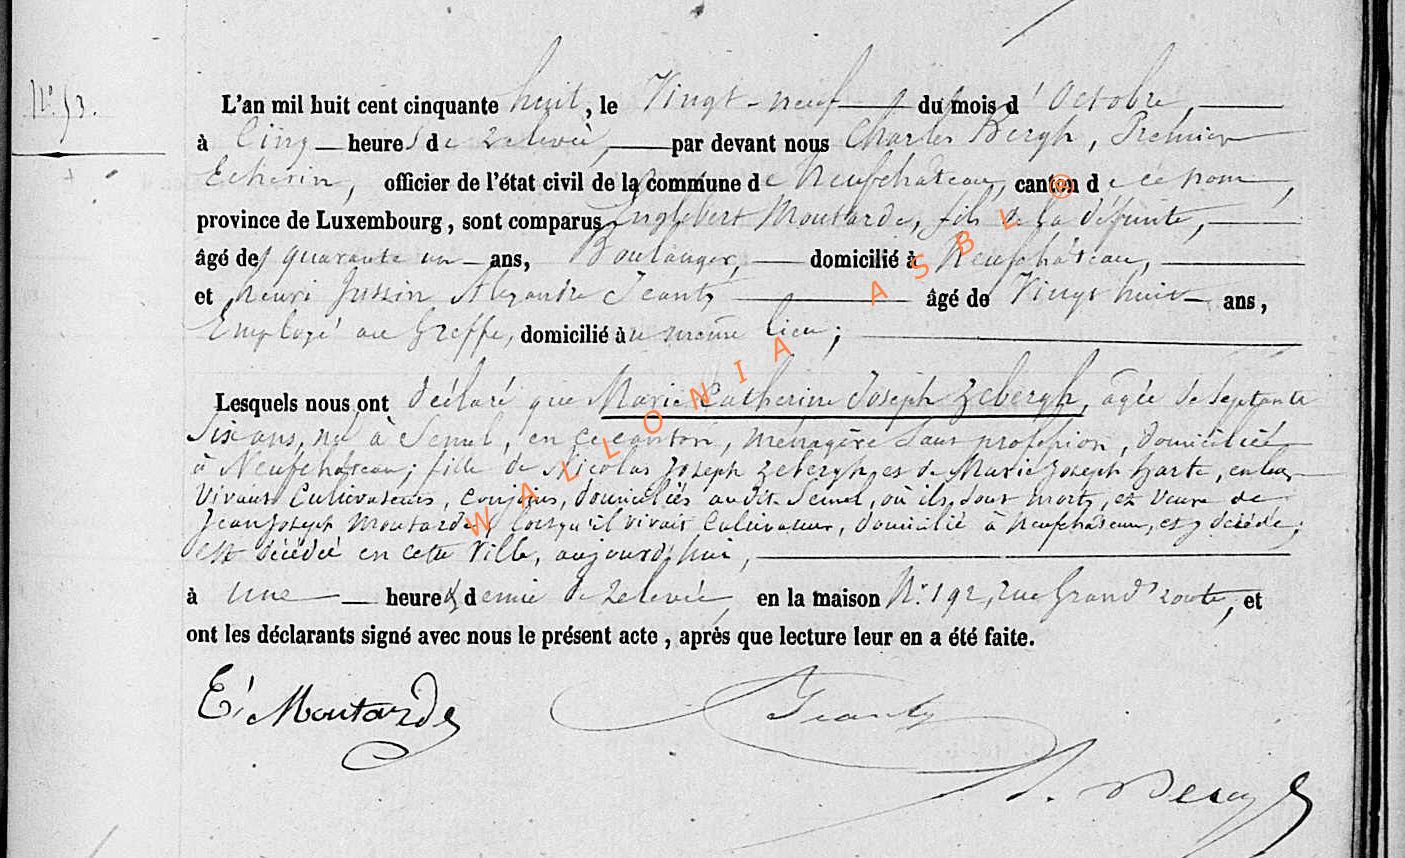 N.° 53.
L'an mil huit cent cinquante huit, le Vingt-neuf du mois d'Octobre,
à Cinq heures de relevée, par devant nous Charles Bergh, Premier
Echevin, officier de l'état civil de la commune de Neufchâteau, canton de ce nom,
province de Luxembourg, sont comparus Englebert Moutarde, fils de la défunte,
âgé de quarante un ans, Boulanger, domicilié à Neufchâteau,
et henri Jussin Alexandre Jeanty âgé de Vingt huit ans,
Employé au Greffe, domicilié au même lieu;
Lesquels nous ont déclaré que Marie Catherine Joseph Zebergh, agée de septante
Six ans, né à Semel, en ce canton, ménagère Sans profession, domiciliée
à Neufchateau; fille de Nicolas Joseph Zebergh, et de Marie Joseph harte, en leur
Vivant Cultivateurs, conjoins, domiciliés audit Semel, où ils sont morts, et Veuve de
Jean Joseph Moutarde, lorsqu'il vivait Cultivateur, domicilié à Neufchateau, et y décédé;
est décédée en cette Ville, aujourd'hui,
à une heure & demie de relevée, en la maison N.° 192, rue Grand'route, et
ont les déclarants signé avec nous le présent acte, après que lecture leur en a été faite.
E. Moutarde
Jeanty
WALLONIA ASBL ®